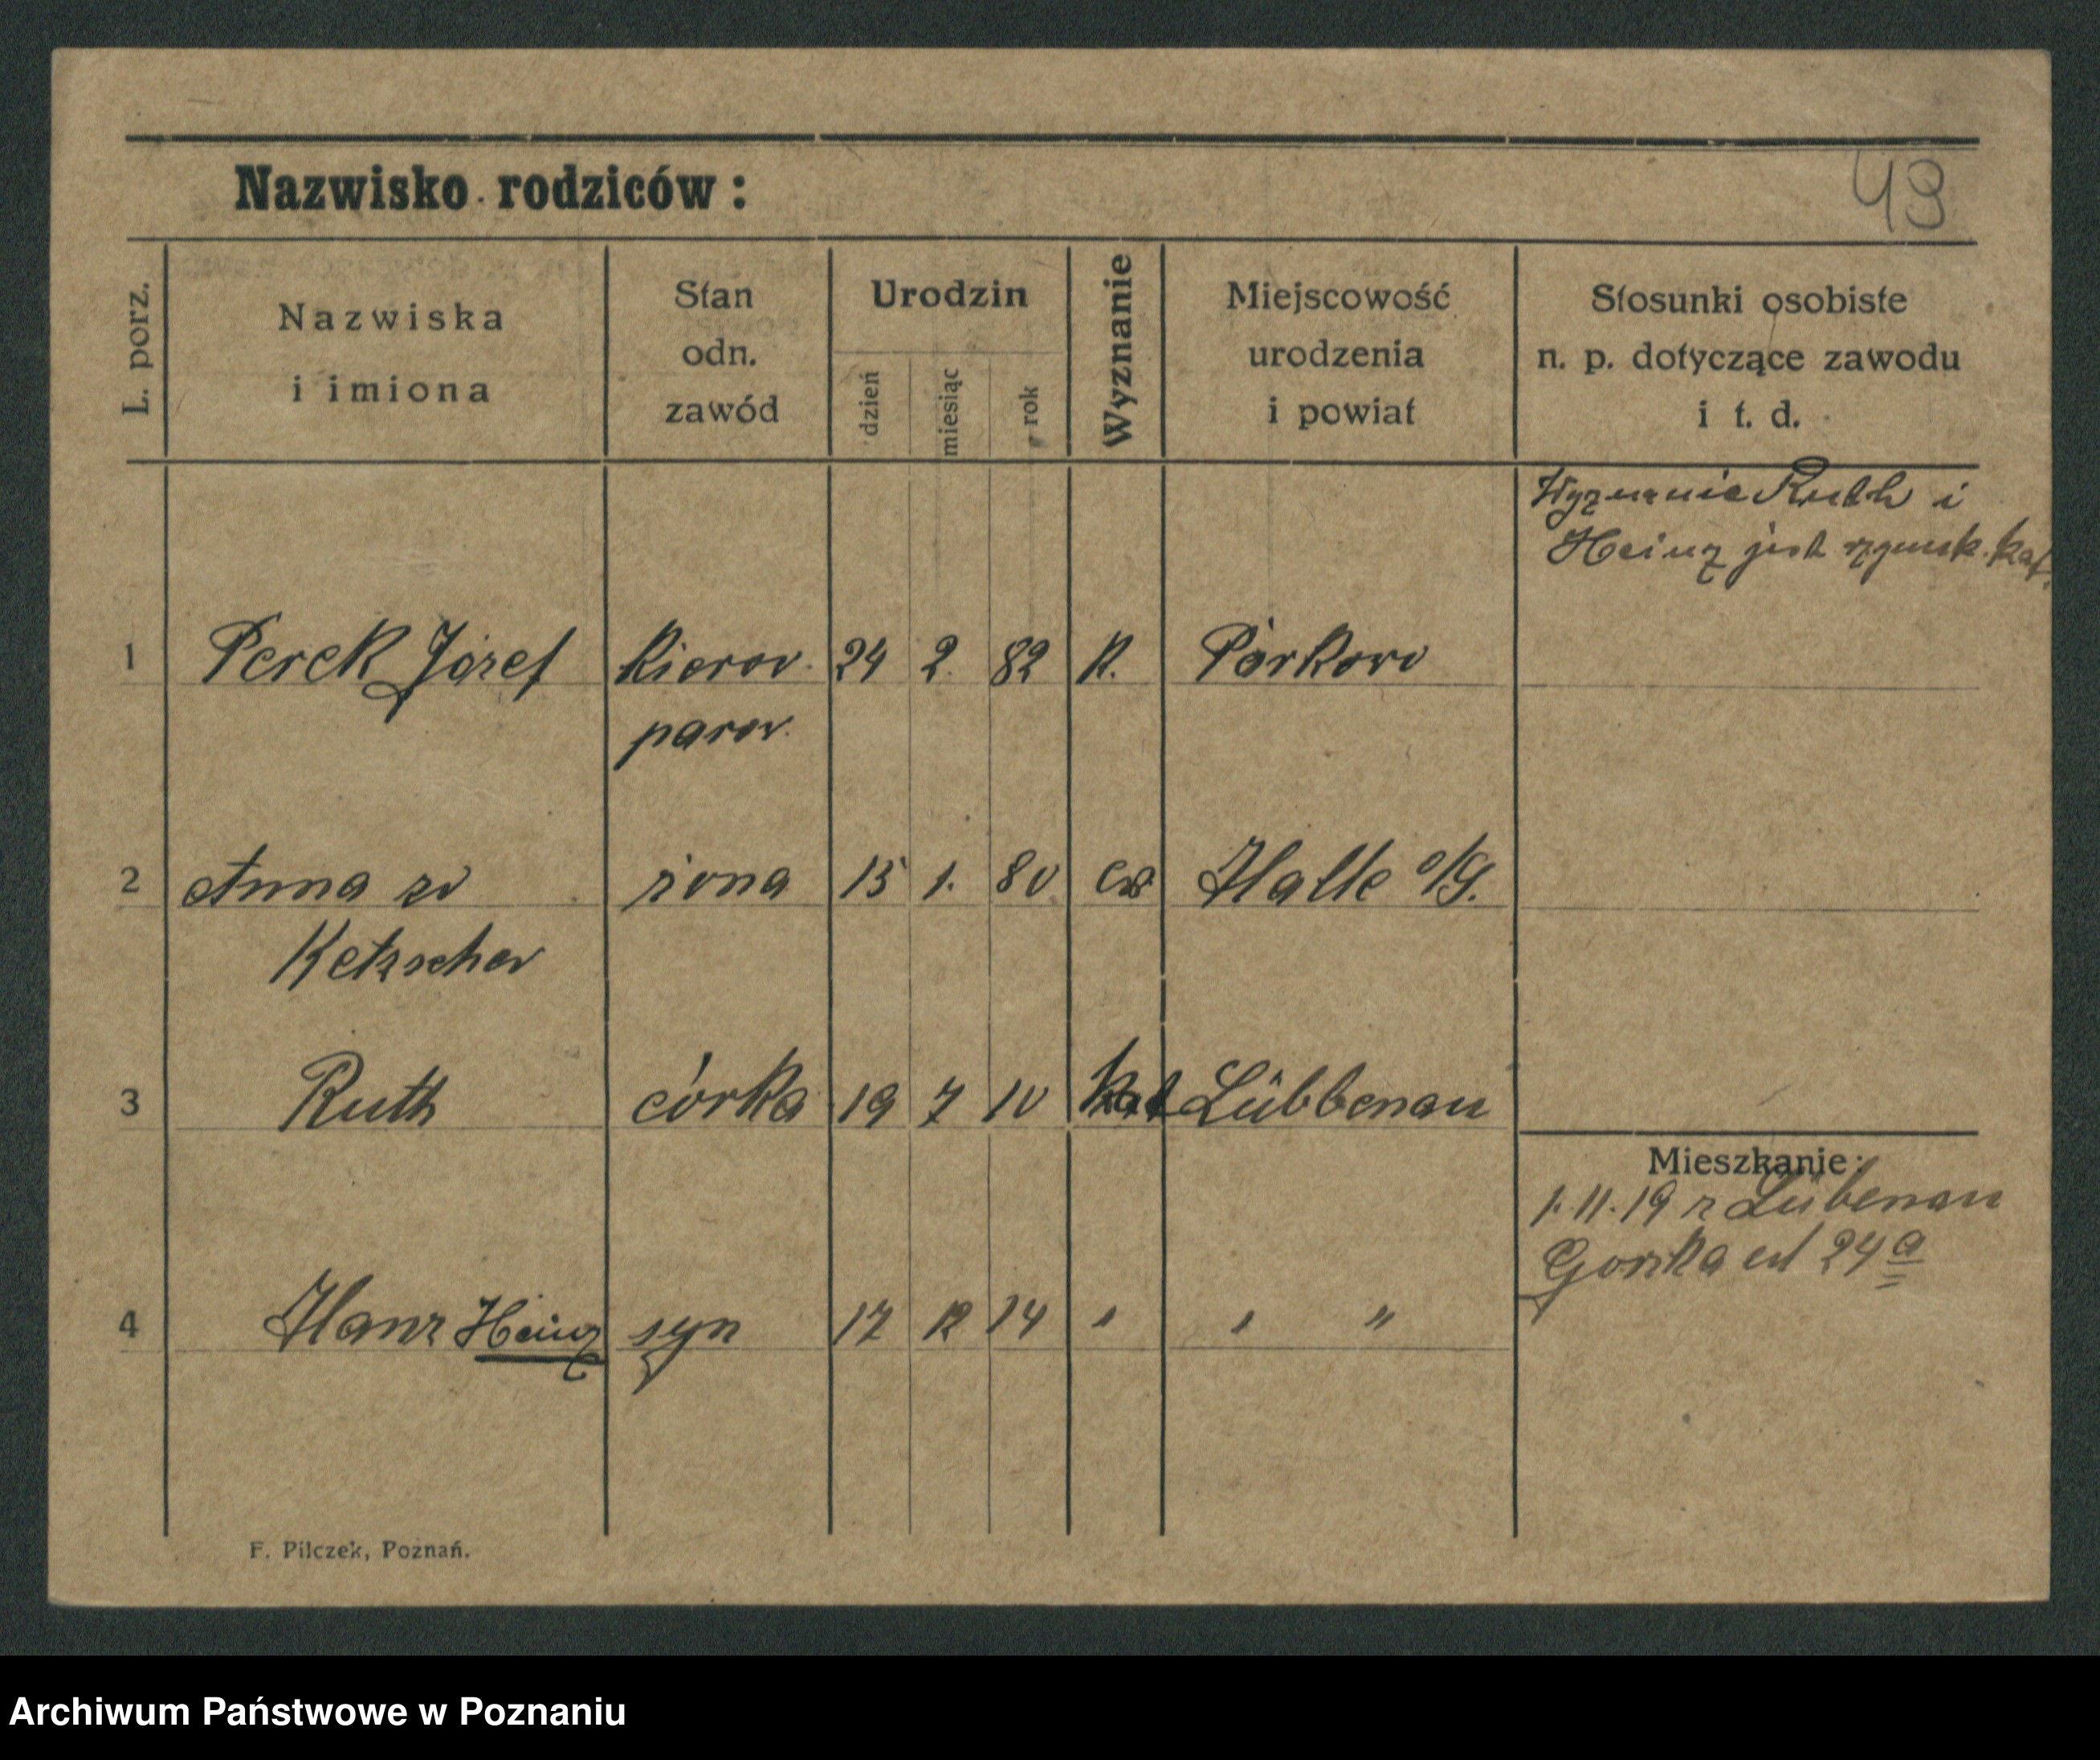 49
Nazwisko rodziców:
L. porz.
Nazwiska
i imiona
Stan
odn.
zawód
Urodzin
dzień
miesiąc
rok
Wyznanie
Miejscowość
urodzenia
i powiat
Stosunki osobiste
n. p. dotyczące zawodu
i t. d.
Wyznanie Ruth i
Heinz jest rzymsk. kat.
1 Perek Józef kierow. 24 2. 82 K. Piorkowo
parow.
2 Anna zd żona 15 1. 80 ew Halle a/S.
Ketzscher
3 Ruth córka 19 7 10 kat Lübbenau
Mieszkanie:
1.11.19 z Lübenau
24a
4 Hanz Heinz syn 17 12 14 " " "
F. Pilczek, Poznań.
Archiwum Państwowe w Poznaniu